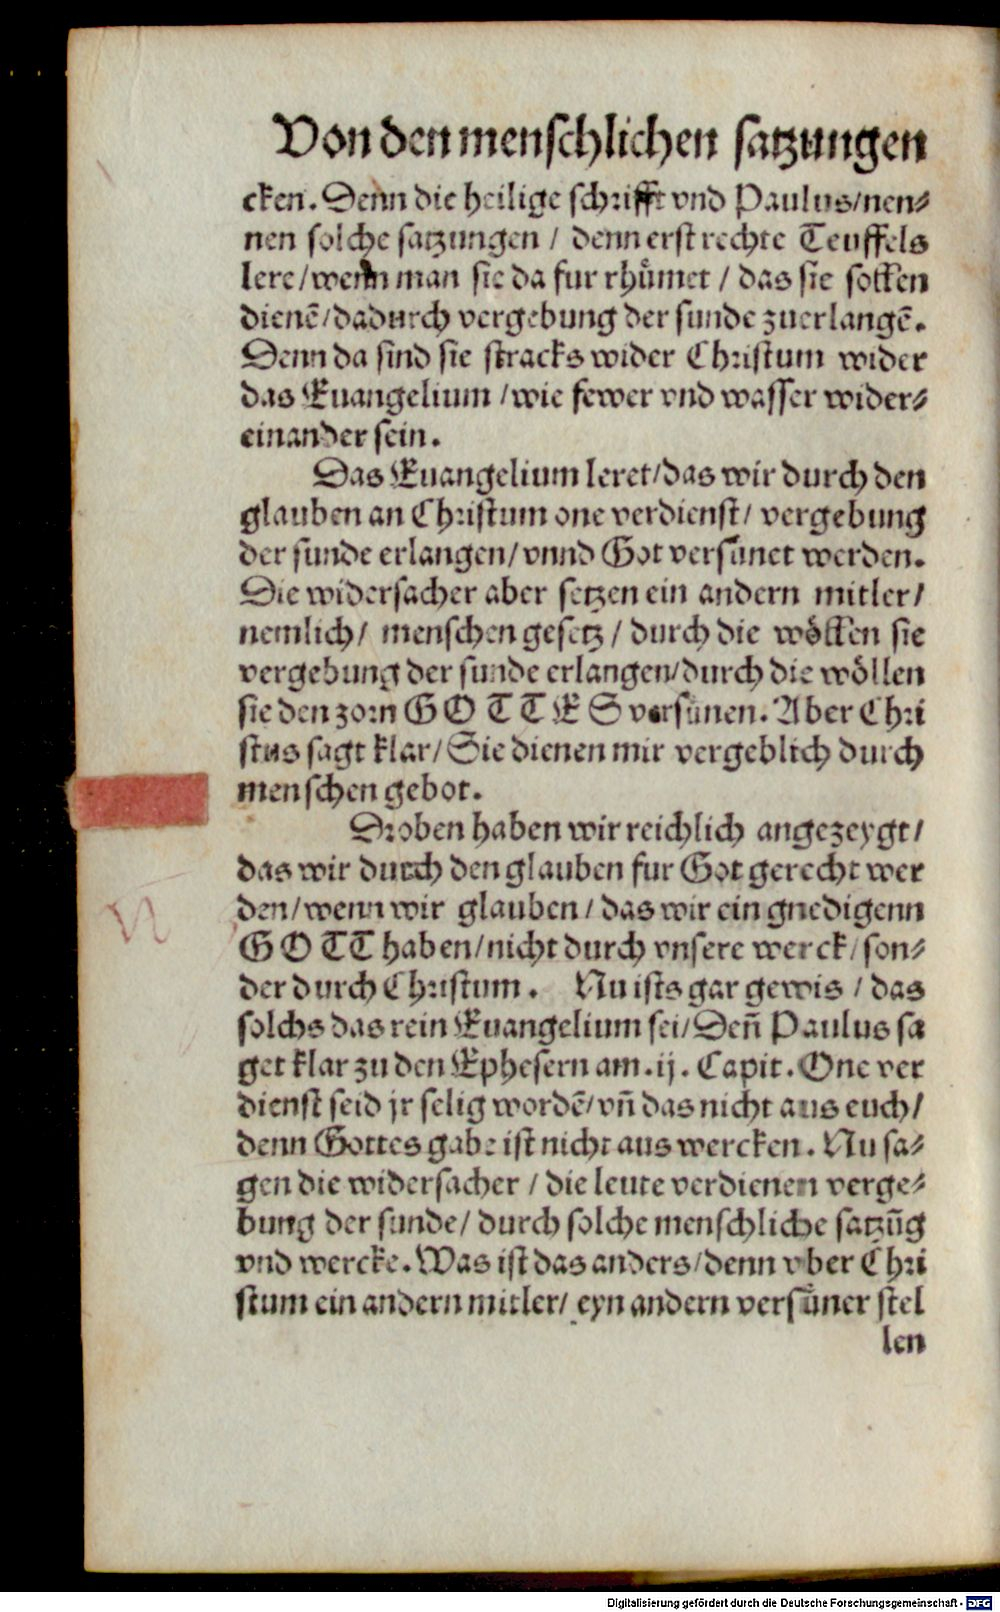 Von den menschlichen satzungen
cken. Denn die heilige schrifft vnd Paulus/nen⸗
nen solche satzungen / denn erst rechte Teuffels
lere/wenn man sie da fur rhuͤmet / das sie sollen
dienẽ/dadurch vergebung der sunde zuerlangẽ.
Denn da sind sie stracks wider Christum wider
das Euangelium /wie fewer vnd wasser wider⸗
einander sein.
Das Euangelium leret/das wir durch den
glauben an Christum one verdienst/ vergebung
der sunde erlangen/vnnd Got versünet werden.
Die widersacher aber setzen ein andern mitler/
nemlich/ menschen gesetz / durch die woͤllen sie
vergebung der sunde erlangen/durch die woͤllen
sie den zorn GOTTES versünen. Aber Chri
stus sagt klar/Sie dienen mir vergeblich durch
menschen gebot.
Droben haben wir reichlich angezeygt/
das wir durch den glauben fur Got gerecht wer
den/wenn wir glauben/ das wir ein gnedigenn
GOTT haben/nicht durch vnsere werck/son⸗
der durch Christum. Nu ists gar gewis / das
solchs das rein Euangelium sei/Deñ Paulus sa
get klar zu den Ephesern am .ij. Capit. One ver
dienst seid jr selig wordẽ/vñ das nicht aus euch/
denn Gottes gabe ist nicht aus wercken. Nu sa⸗
gen die widersacher / die leute verdienen verge⸗
bung der sunde/ durch solche menschliche satzũg
vnd wercke. Was ist das anders/denn vber Chri
stum ein andern mitler/ eyn andern versuͤner stel
len
Digitalisierung gefördert durch die Deutsche Forschungsgemeinschaft - DFG